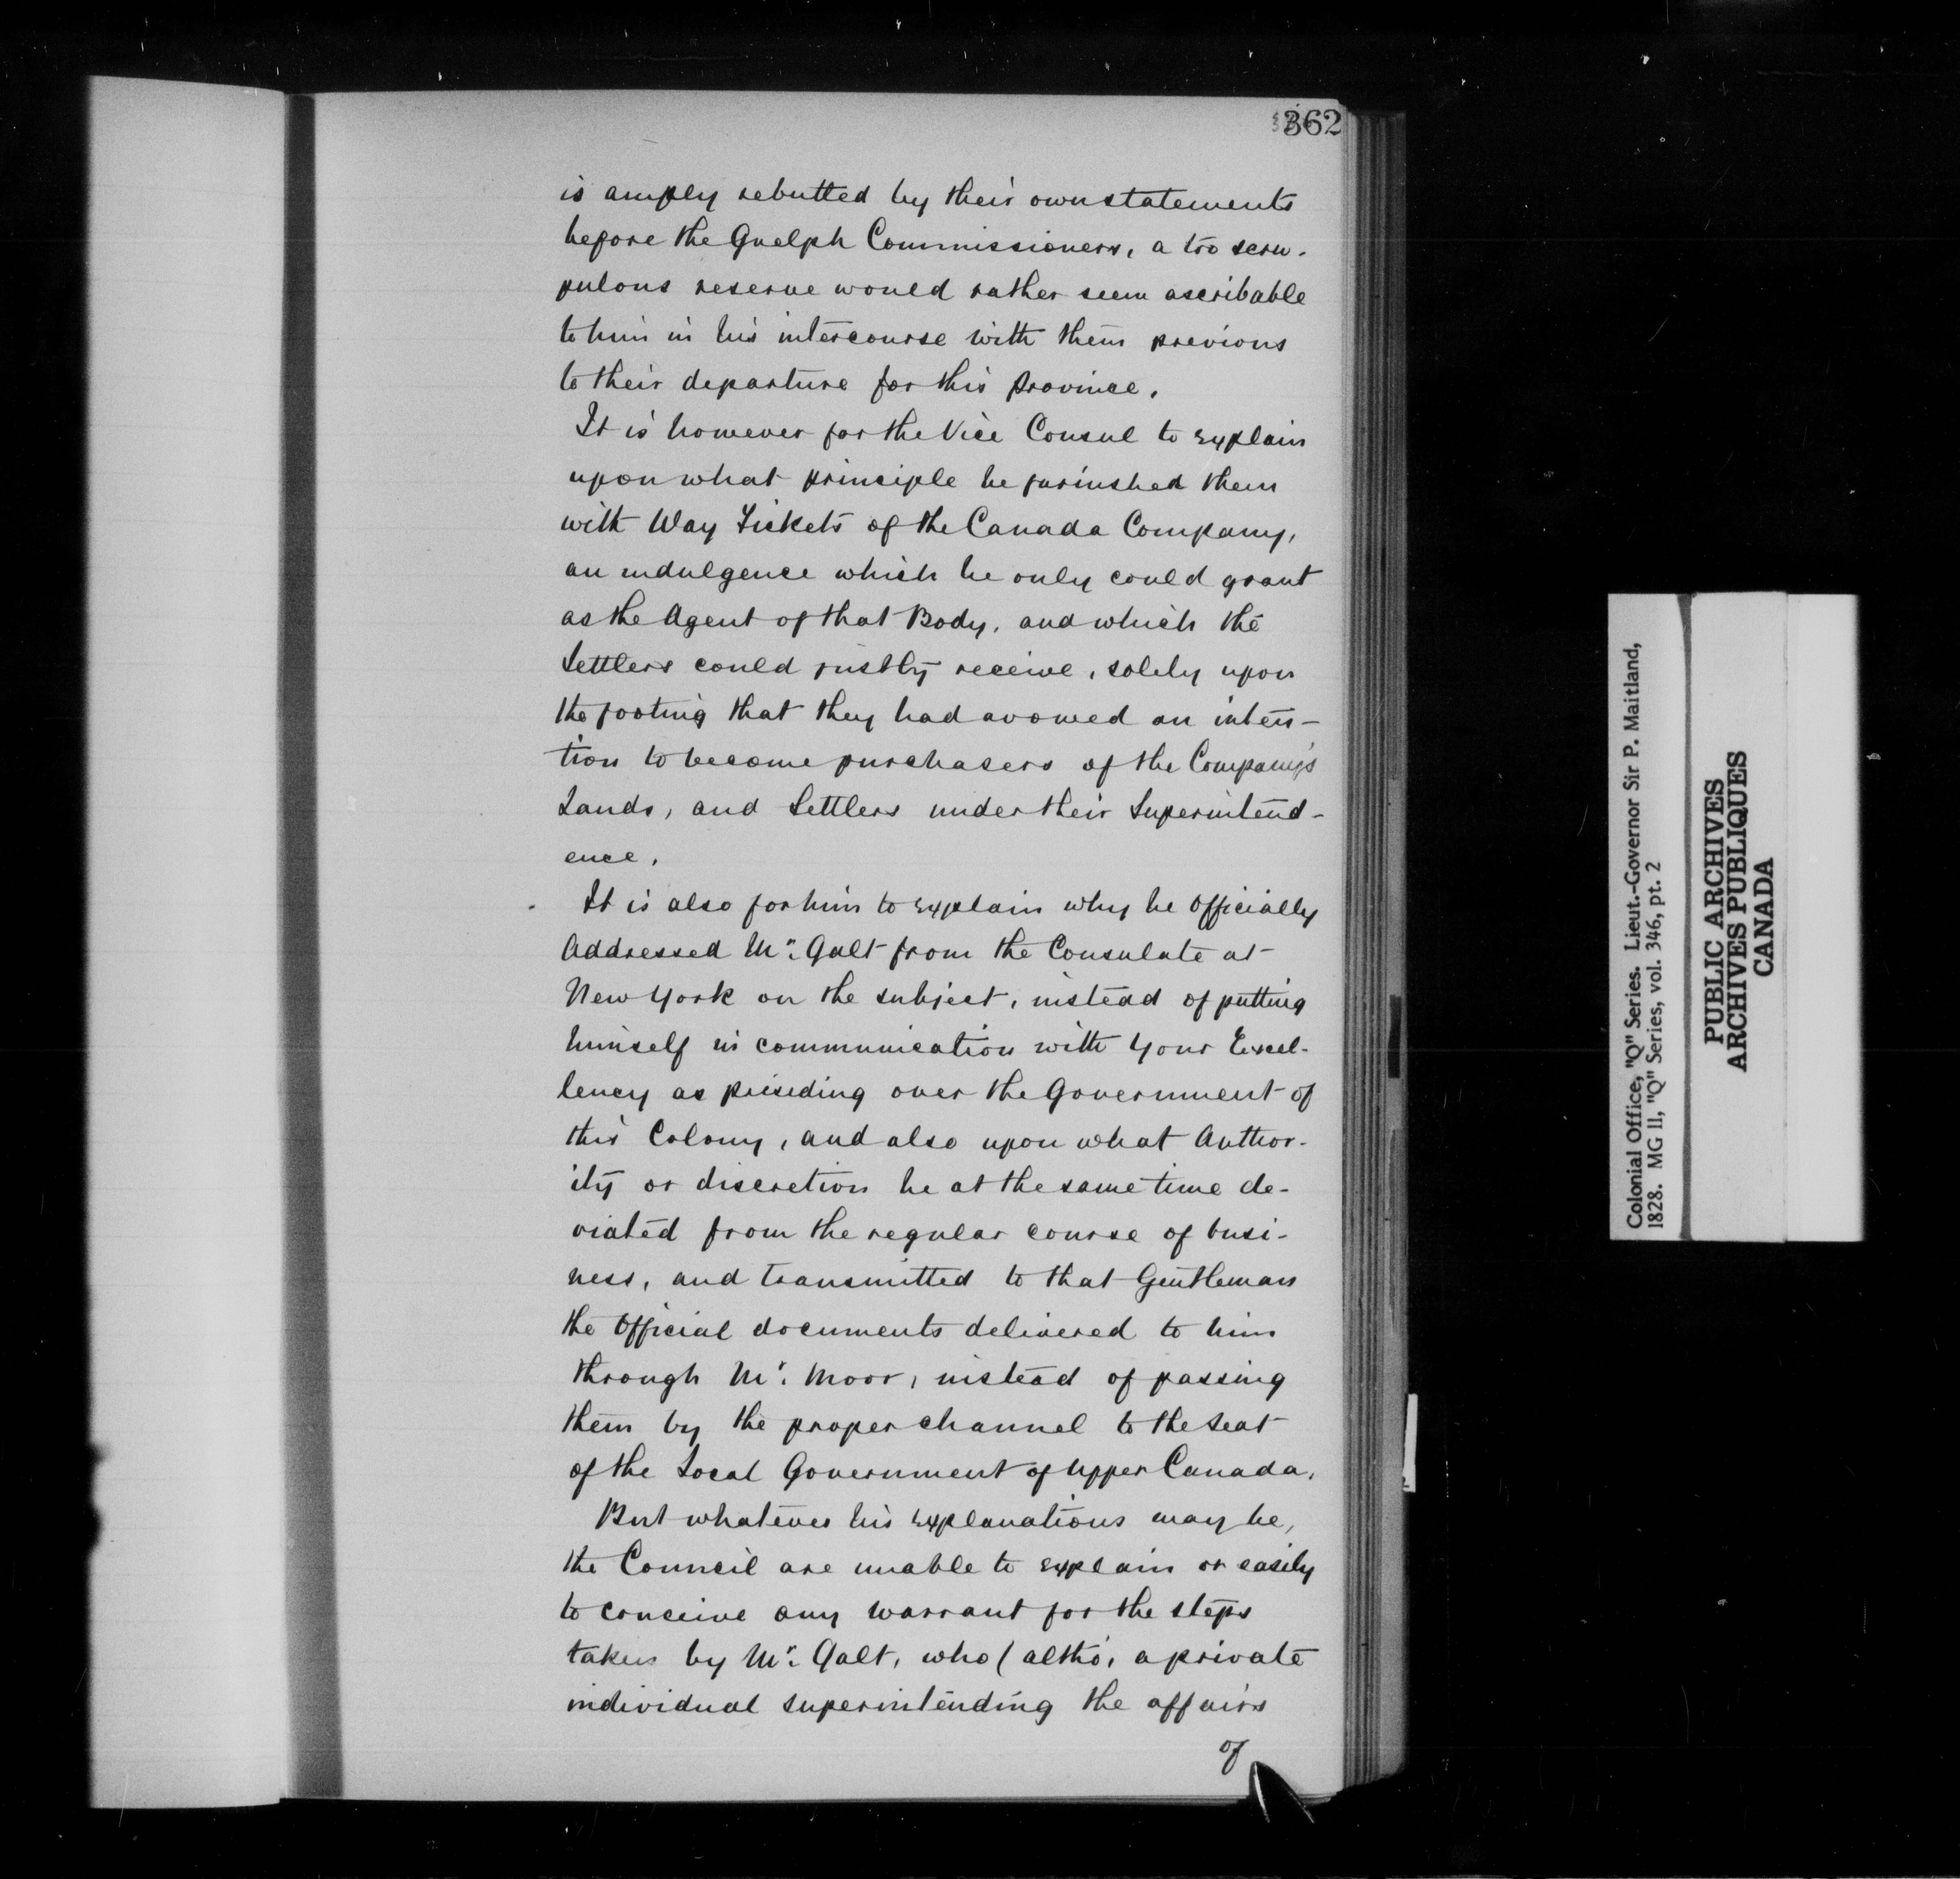 362
is amply rebutted by their own statements
before the Guelph Commissioners, a too scru-
pulous reserve would rather seem ascribable
to him in his intercourse with them previous
to their departure for this Province.
It is however for the Vice Consul to explain
upon what principle he furinshed them
with Way Tickets of the Canada Company,
an indulgence which he only could grant
as the Agent of that Body, and which the
Settlers could justly receive, solely upon
the footing that they had avowed an inten-
tion to become purchasers of the Company's
Lands, and Settlers under their Superintend-
ence.
It is also for him to explain why he officially
Addressed Mr. Galt from the Consulate at
New York on the subject, instead of putting
himself in communication with Your Excel-
lency as presiding over the Government of
this Colony, and also upon what Author-
ity or discretion he at the same time de-
viated from the regular course of busi-
ness, and transmitted to that Gentleman
the Official documents delivered to him
through Mr. Moor, instead of passing
them by the proper channel to the Seat
of the Local Government of Upper Canada.
But whatever his explanations may be,
the Council are unable to explain or easily
to conceive any Warrant for the steps
taken by Mr. Galt, who (altho', a private
individual superintending the affairs
of
Colonial Office, "Q" Series. Lieut.-Governor Sir P. Maitland,
1828. MG 11, "Q" Series, vol. 346, pt. 2
PUBLIC ARCHIVES
ARCHIVES PUBLIQUES
CANADA